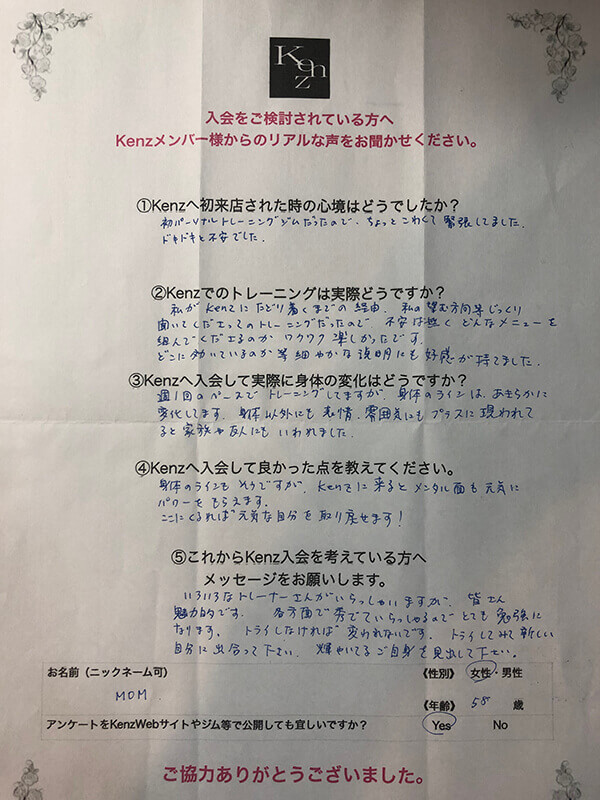 Kenz
入会をご検討されている方へ
Kenzメンバー様からのリアルな声をお聞かせください。
①Kenzへ初来店された時の心境はどうでしたか？
初パーソナルトレーニングジムだったので、ちょっとこわくて緊張してました。
ドキドキと不安でした。
②Kenzでのトレーニングは実際どうですか？
私がKenzにたどり着くまでの経由、私の望む方向等じっくり
聞いてくださってのトレーニングだったので、不安は無く どんなメニューを
組んでくださるのか ワクワク楽しかったです。
どこに効いているのか等細やかな説明にも好感が持てました。
③Kenzへ入会して実際に身体の変化はどうですか？
週1回のペースでトレーニングしてますが、身体のラインは、あきらかに
変化してます。身体以外にも表情、雰囲気にもプラスに現われて
ると家族や友人にもいわれました。
④Kenzへ入会して良かった点を教えてください。
身体のラインもそうですが、Kenzに来るとメンタル面も元気に
パワーをもらえます。
ここにくれば元気な自分を取り戻せます！
⑤これからKenz入会を考えている方へ
メッセージをお願いします。
いろいろなトレーナーさんがいらっしゃいますが、皆さん
魅力的です。各方面で秀でていらっしゃるのでとても勉強に
なります。トライしなければ変われないです。トライしてみて新しい
自分に出合って下さい。輝やいてるご自身を見出して下さい。
お名前（ニックネーム可） 《性別》 女性・男性
MOM 《年齢》 58 歳
アンケートをKenzWebサイトやジム等で公開しても宜しいですか？ Yes No
ご協力ありがとうございました。